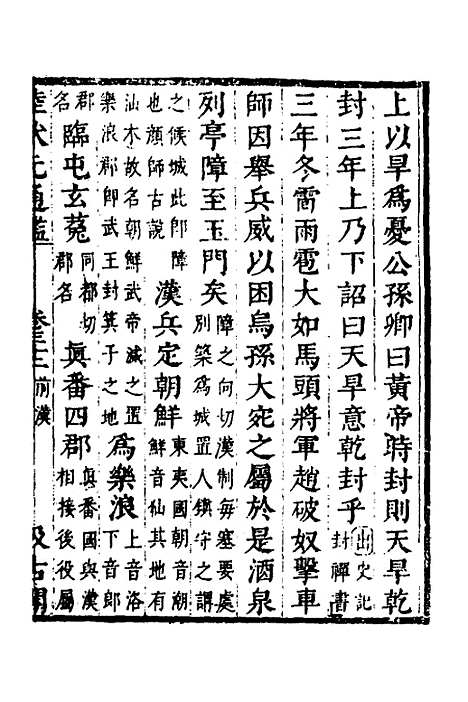 上以旱爲憂公孫卿曰黃帝時封則天旱乾
封三年上乃下詔曰天旱意乾封乎出史記封禪書
三年冬雷雨雹大如馬頭將軍趙破奴擊車
師因舉兵威以困烏孫大宛之屬於是酒泉
列亭障至玉門矣障之向切漢制每塞要處别築爲城置人鎮守之謂
之候城此卽障也顔師古說漢兵定朝鮮東夷國朝音潮鮮音仙其地有
汕水故名朝鮮武帝滅之置樂浪郡卽武王封箕子之地爲樂浪上音洛下音郎
郡名臨屯玄菟同都切郡名眞番四郡眞番國與漢相接後役屬
通鑑
卷三十二前漢
汲古閣